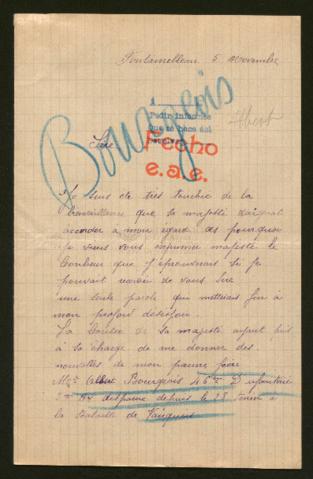 Fontainebleau 5 novembre
1
Pedir informes
que se hace del
Fecho
e.a.e.
Bourgeois
Albert
Sire
Je suis été très touchée de la
bienveillance que sa majesté daignat
accorder a mon égard
je viens vous exprimer majesté le
bonheur que j'éprouverais si je
pouvait recevoir de vous Sire
une toute parole qui mettrais fin à
mon profond désespoir.
La bonté de sa majesté ayant pris
à sa charge de me donner des
nouvelles de mon pauvre frère
Albert Bourgeois 46me D'infanterie
disparue depuis le 28 février à
la bataille de Vauquois